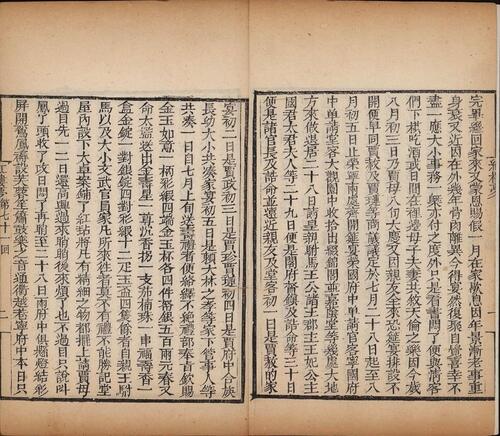 完畢回家來又蒙恩賜假一月在家歇息因年景漸老事重
身衰又近因在外幾年骨肉離異今得宴然復聚自覺喜幸不
盡一應大小事務一槩亦付之度外只是看書悶了便與清客
們下棋吃酒或日間在裡邊母子夫妻共敘天倫之樂因今歲
八月初三日乃賈母八旬大慶又因親友全來恐筵宴排設不
開便早同賈赦及賈璉等商議議定於七月二十八日起至八
月初五日止寧榮兩處齊開筵宴寧國府中單請官客榮國府
中單請堂客大觀園中收拾出綴錦閣並嘉蔭堂等幾處大地
方來做退居二十八日請皇親駙馬王公諸王郡主王妃公主
國君太君夫人等二十九日便是閣府督鎮及誥命等三十日
便是諸官長及誥命並遠近親友及堂客初一日是賈赦的家
宴初二日是賈政初三日是賈珍賈璉初四日是賈府中合族
長幼大小共凑家宴初五日是賴大林之孝等家下管事人等
共凑一日自七月上旬送壽禮者便絡繹不絕禮部奉旨欽賜
金玉如意一柄彩緞四端金玉杯各四件帑銀五百兩元春又
命太監送出金壽星一尊沉香拐一支茄楠珠一串福壽香一
盒金錠一對銀錠四對彩緞十二疋玉盃四隻餘者自親王駙
馬以及大小文武官員家凡所來往者莫不有禮不能勝記堂
屋內設下大桌案鋪了紅毡將凡有精細之物都擺上請賈母
過目先一二日還高興過來瞧瞧後來煩了也不過目只說叫
鳳丫頭收了改日悶了再瞧至二十八日兩府中俱懸燈結彩
屏開鸞鳳褥設芙蓉笙簫鼓樂之音通衢越巷寧府中本日只
第七十一回